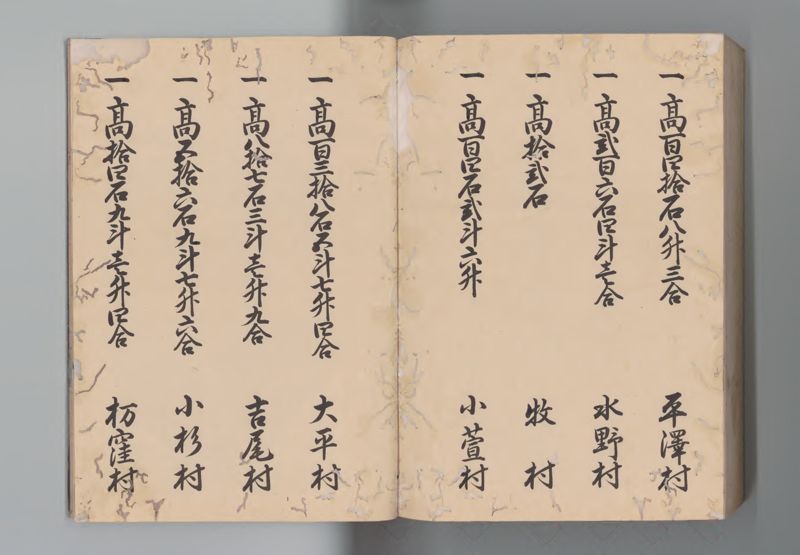 一高百四拾石八升三合 平澤村
一高弐百六石四斗壱合 水野村
一高拾弐石 牧村
一高百四石弐斗六升 小萱村
一高百三拾八石五斗七升四合 大平村
一高八拾七石三斗壱升九合 吉尾村
一高五拾六石九斗七升六合 小杉村
一高拾四石九斗壱升四合 枋窪村